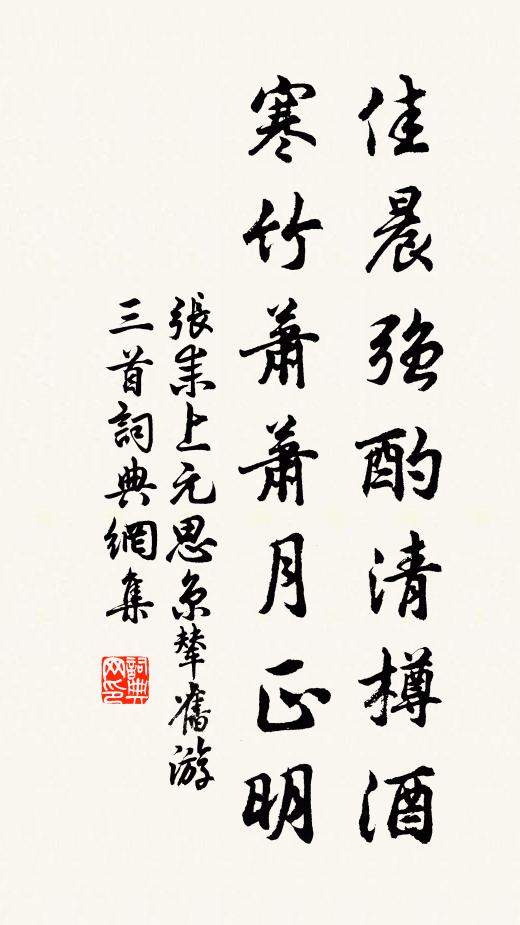 佳晨強酌清樽酒
寒竹蕭蕭月正明
張耒上元思京輦舊游
三首詞典網集
詞典網印